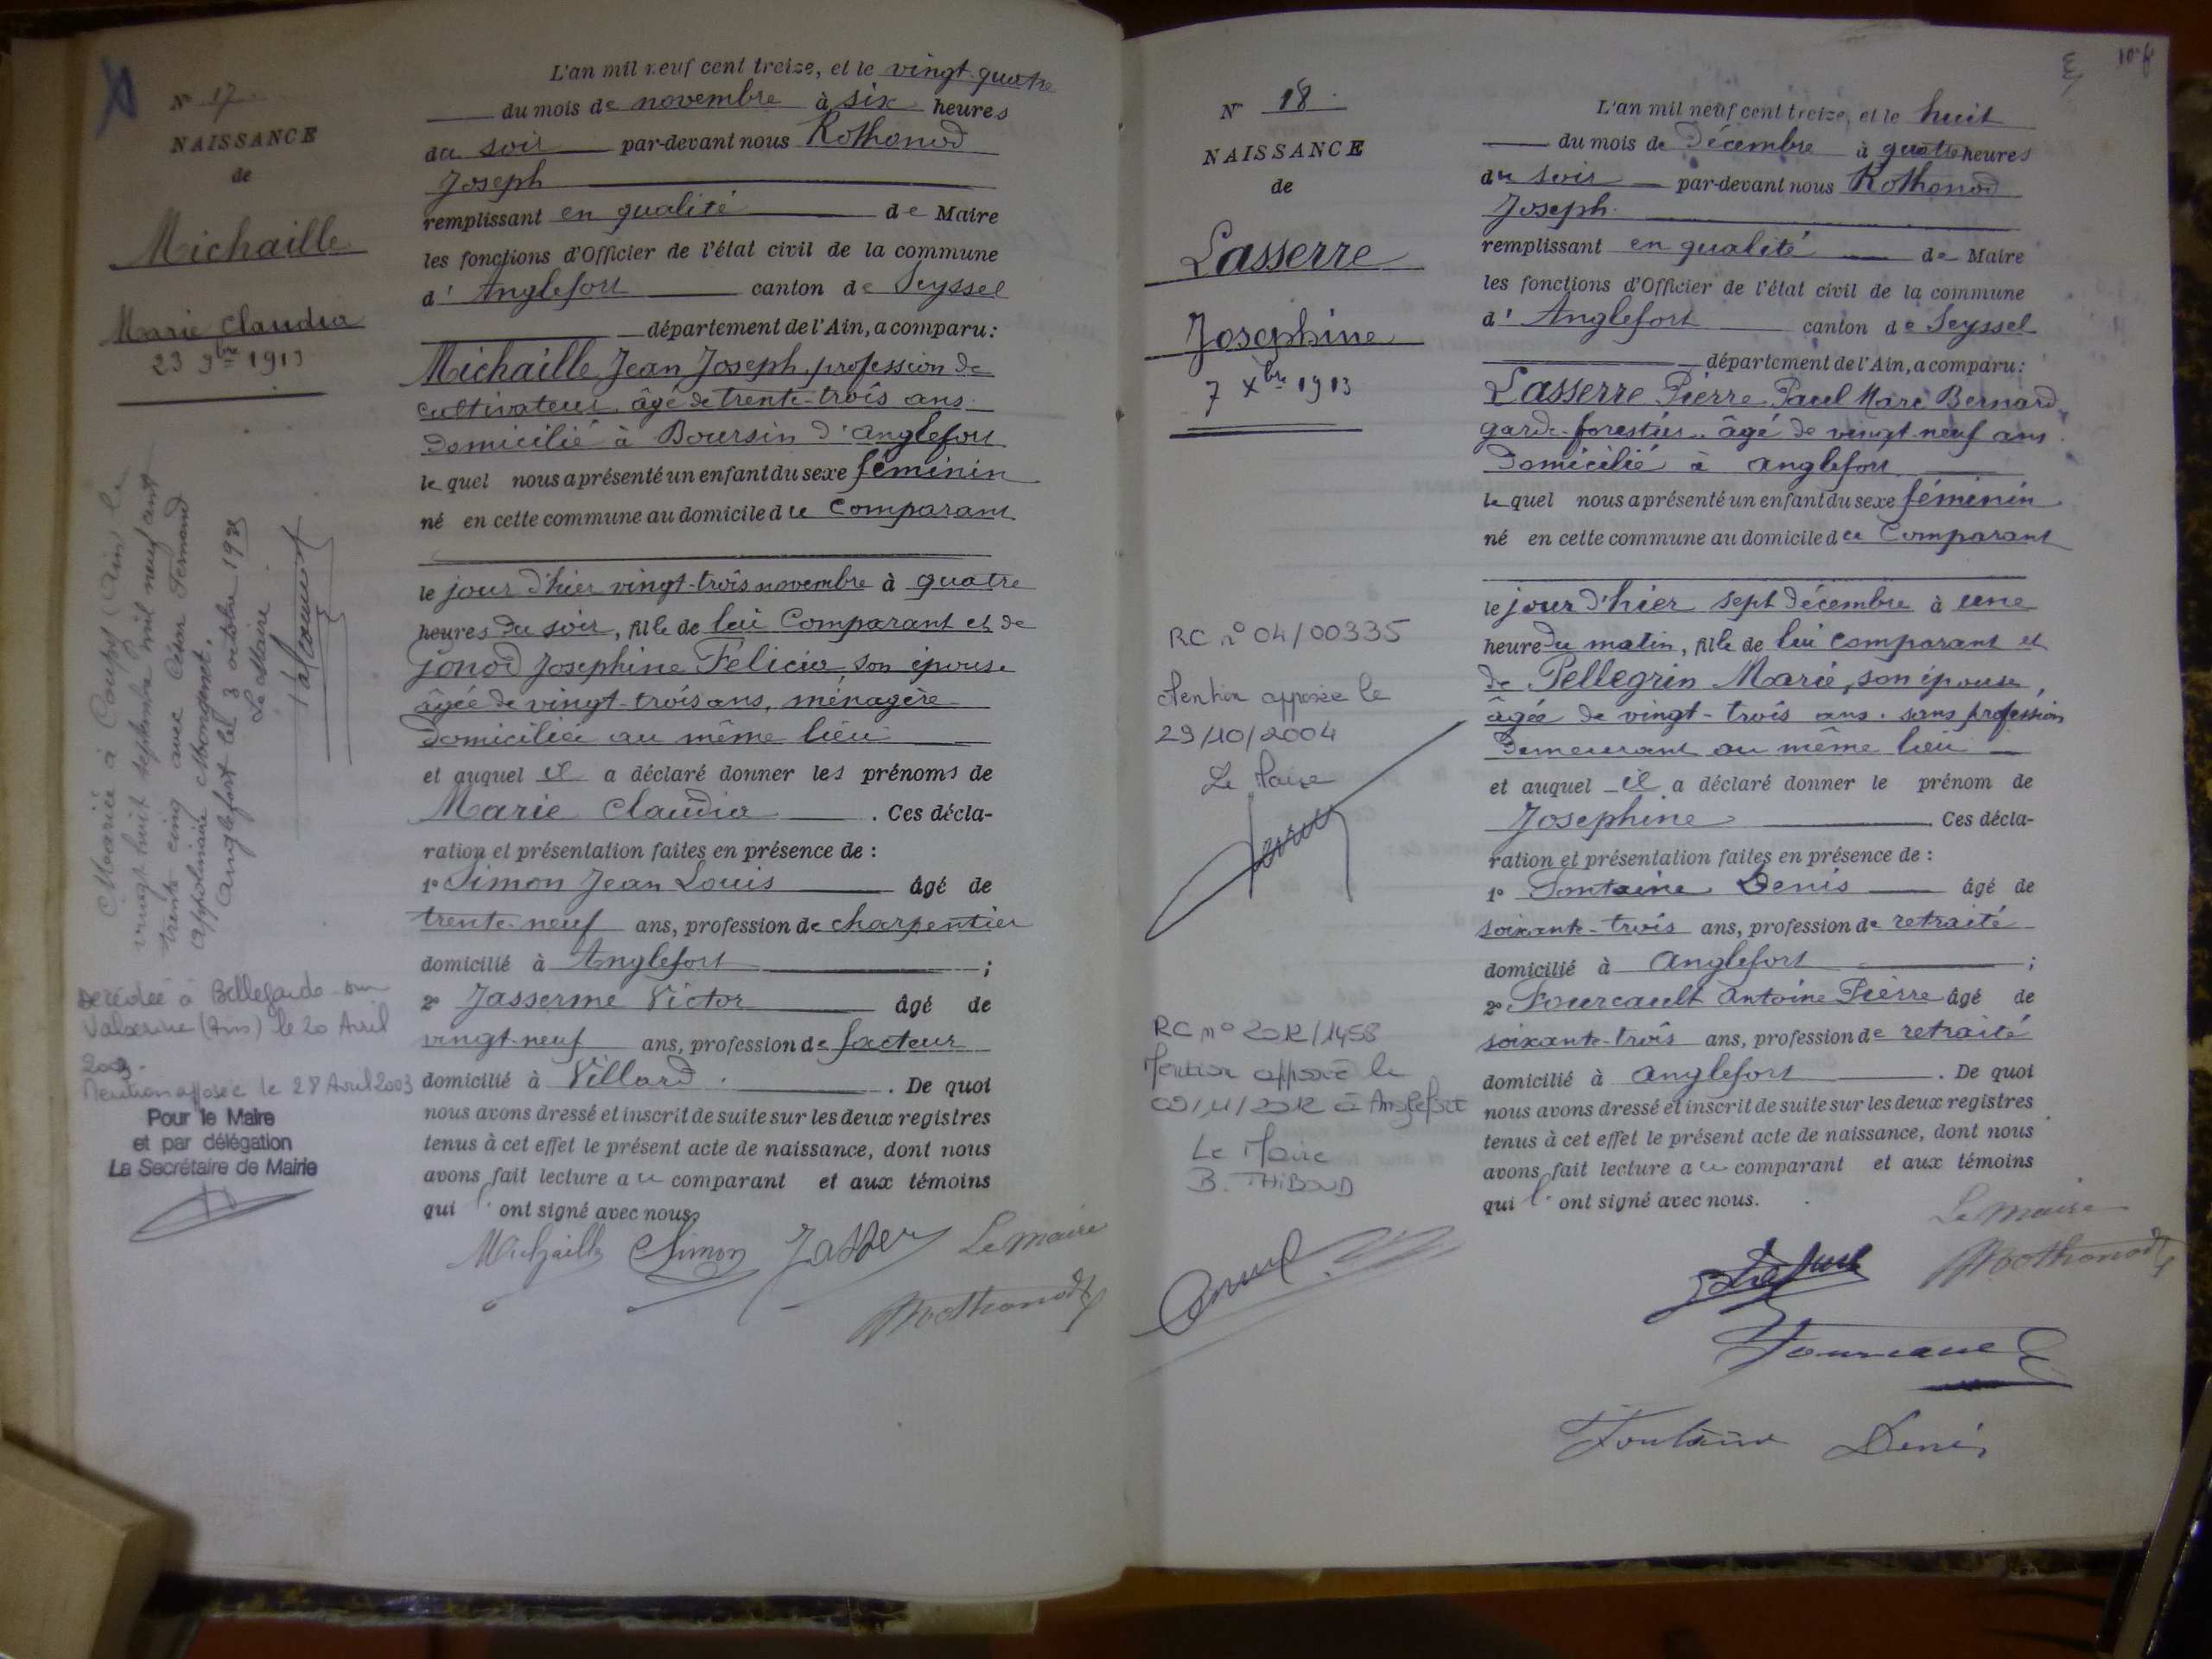 N° 17
NAISSANCE
de
Michaille
Marie Claudia
23 9bre 1913
Mariée à Coupy (Ain) le
vingt huit septembre mil neuf cent
trente cinq avec César Fernand
Appolinaire Mongenet.
Anglefort le 3 octobre 1935
Le Maire
Décédée à Bellegarde sur
Valserine (Ain) le 20 Avril
2003.
Mention apposée le 28 Avril 2003
Pour le Maire
et par délégation
La Secrétaire de Mairie
L'an mil neuf cent treize, et le vingt-quatre
du mois de novembre à six heures
du soir par-devant nous Rothonod
Joseph
remplissant en qualité de Maire
les fonctions d'Officier de l'état civil de la commune
d' Anglefort canton de Seyssel
département de l'Ain, a comparu :
Michaille Jean Joseph, profession de
cultivateur, âgé de trente-trois ans
domicilié à Boursin d'Anglefort
lequel nous a présenté un enfant du sexe féminin
né en cette commune au domicile du Comparant
le jour d'hier vingt-trois novembre à quatre
heures du soir, fille de lui Comparant et de
Jonod Josephine Félicia, son épouse
âgée de vingt-trois ans, ménagère
domiciliée au même lieu
et auquel il a déclaré donner les prénoms de
Marie Claudia . Ces décla-
ration et présentation faites en présence de :
1° Simon Jean Louis âgé de
trente-neuf ans, profession de charpentier
domicilié à Anglefort ;
2° Jasserme Victor âgé de
vingt-neuf ans, profession de facteur
domicilié à Villard . De quoi
nous avons dressé et inscrit de suite sur les deux registres
tenus à cet effet le présent acte de naissance, dont nous
avons fait lecture au comparant et aux témoins
qui l' ont signé avec nous.
Michaille Simon Jasser Le maire
Rothonod
N° 18
NAISSANCE
de
Lasserre
Josephine
7 Xbre 1913
RC n° 04/00335
Mention apposée le
29/10/2004
Le Maire
RC n° 2012/1458
Mention apposée le
09/11/2012 à Anglefort
Le Maire
B. THIBOUD
L'an mil neuf cent treize, et le huit
du mois de Décembre à quatre heures
du soir par-devant nous Rothonod
Joseph
remplissant en qualité de Maire
les fonctions d'Officier de l'état civil de la commune
d' Anglefort canton de Seyssel
département de l'Ain, a comparu :
Lasserre Pierre Paul Marc Bernard,
garde-forestier, âgé de vingt-neuf ans
domicilié à Anglefort
lequel nous a présenté un enfant du sexe féminin
né en cette commune au domicile du Comparant
le jour d'hier sept décembre à une
heure du matin, fille de lui comparant et
de Pellegrin Marie, son épouse,
âgée de vingt-trois ans. sans profession
demeurant au même lieu
et auquel il a déclaré donner le prénom de
Josephine . Ces décla-
ration et présentation faites en présence de :
1° Fontaine Denis âgé de
soixante-trois ans, profession de retraité
domicilié à Anglefort ;
2° Fourcault Antoine Pierre âgé de
soixante-trois ans, profession de retraité
domicilié à Anglefort . De quoi
nous avons dressé et inscrit de suite sur les deux registres
tenus à cet effet le présent acte de naissance, dont nous
avons fait lecture au comparant et aux témoins
qui l' ont signé avec nous.
Le maire
Rothonod
Fontaine Denis